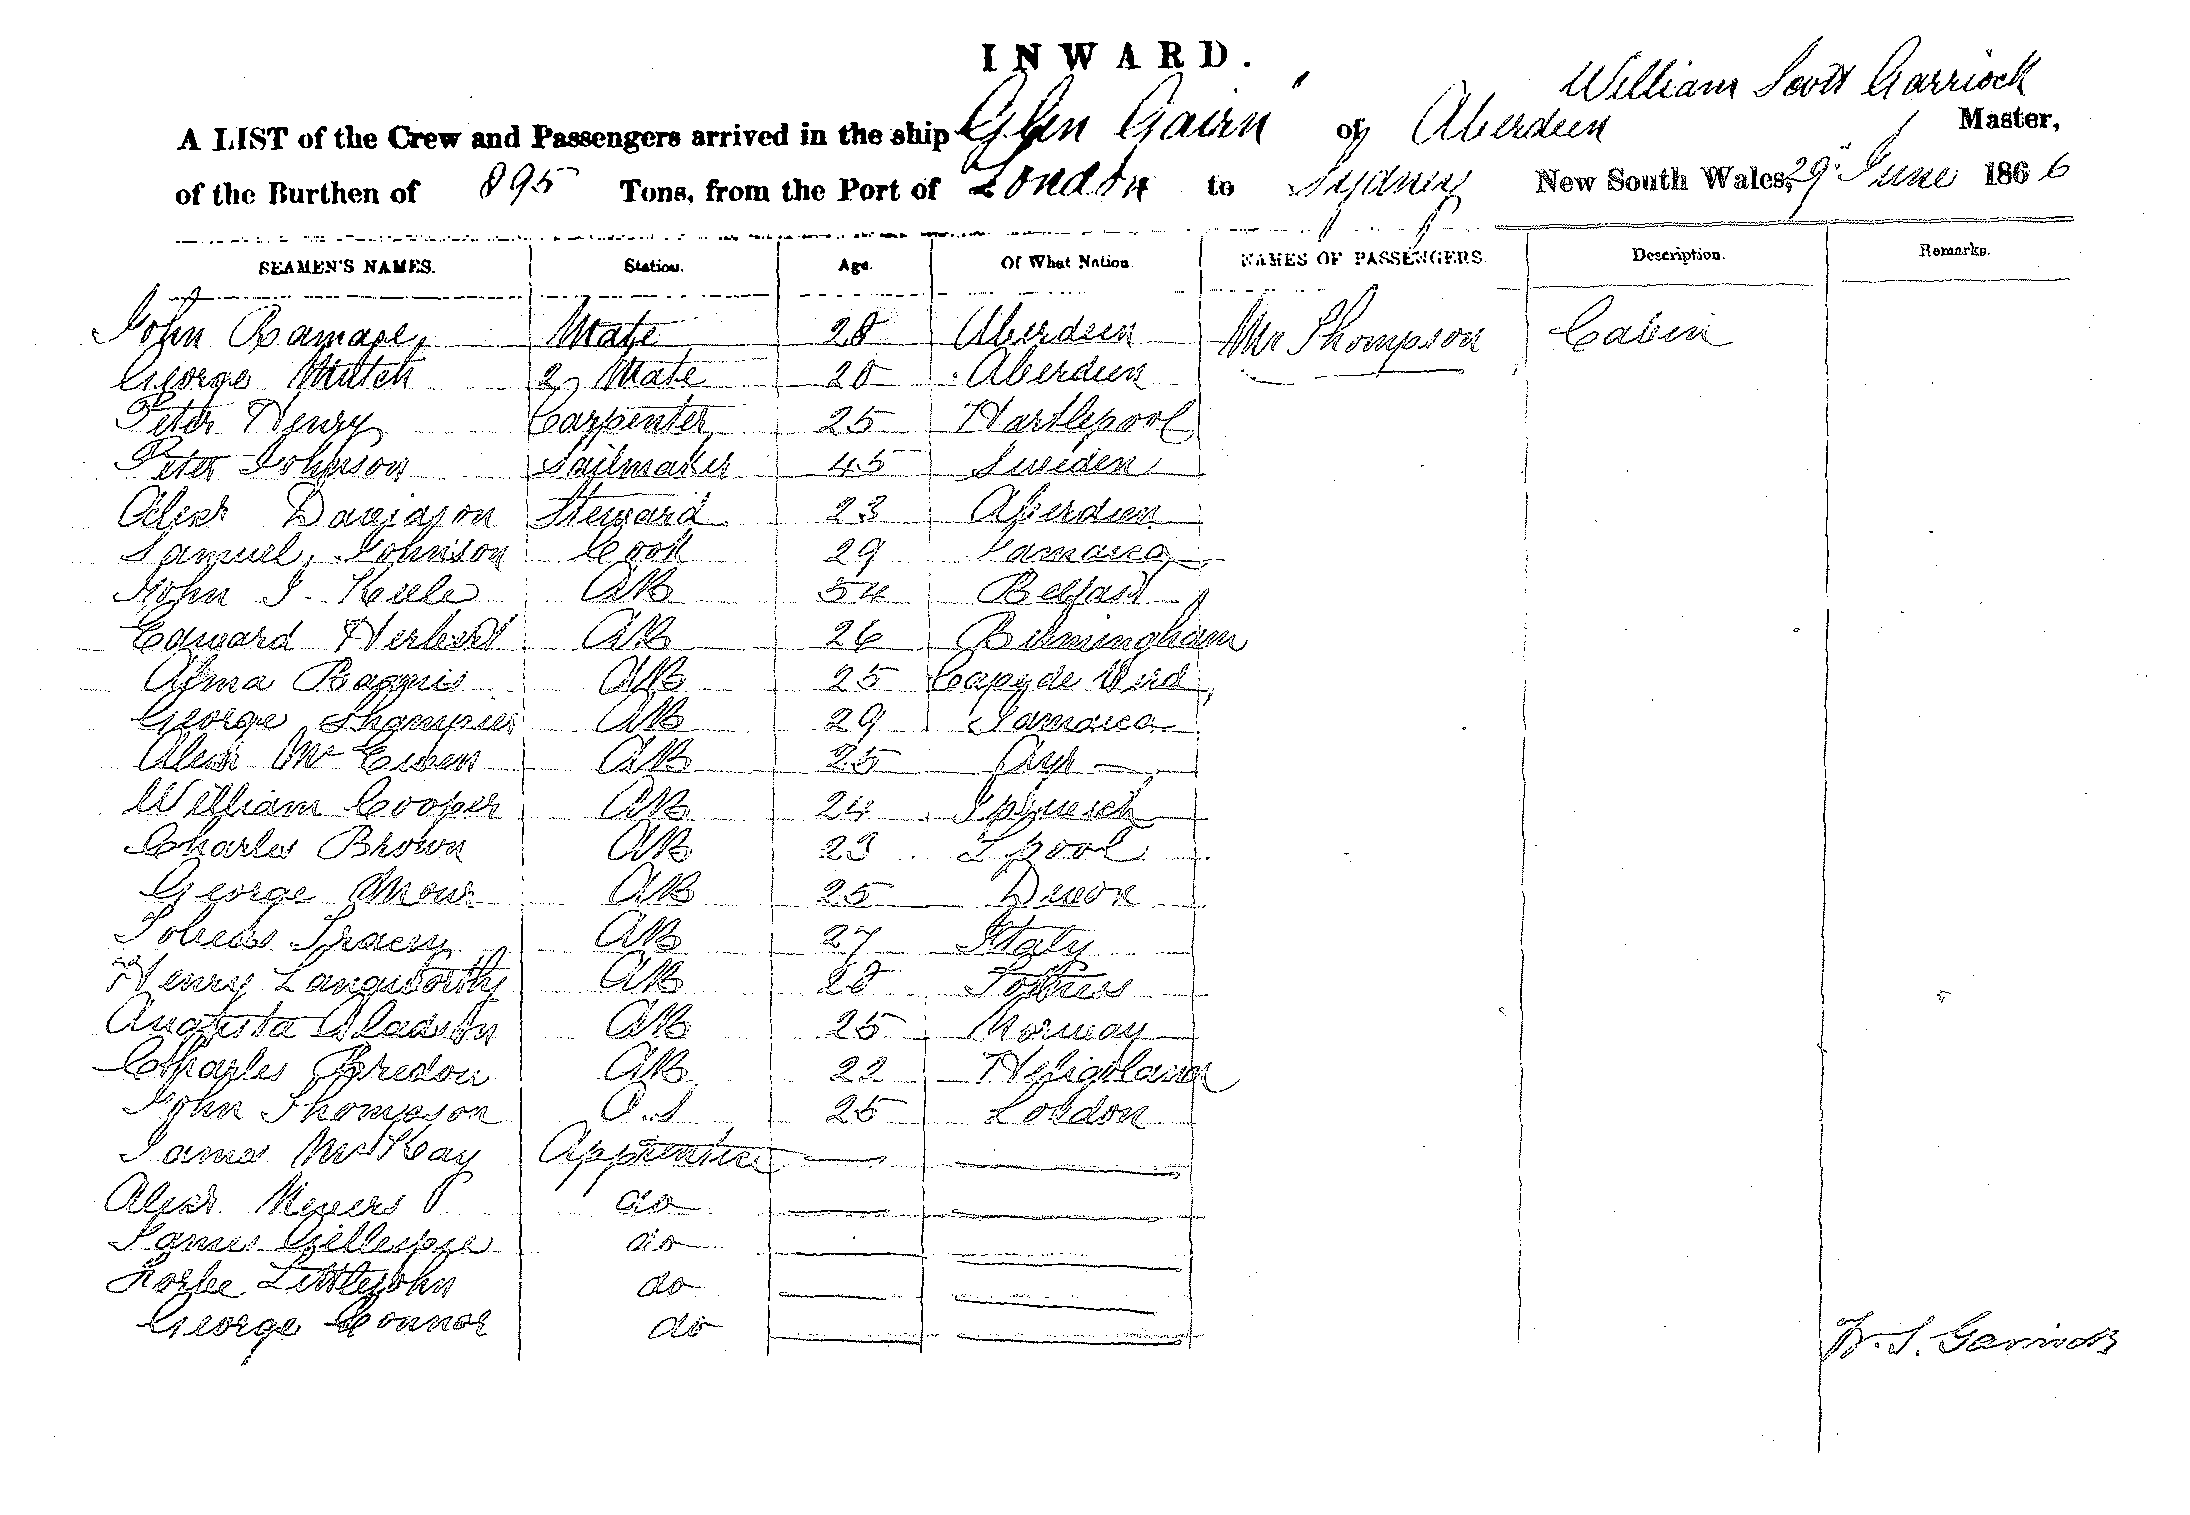 INWARD.
William Scott Garriock
A LIST of the Crew and Passengers arrived in the ship Glen Gairn" of Aberdeen Master,
of the Burthen of 895 Tons, from the Port of London to Sydney New South Wales, 29" June 1866
SEAMEN'S NAMES. Station. Age. Of What Nation. NAMES OF PASSENGERS. Description. Remarks.
John Ramage Mate 28 Aberdeen Mr Thompson Cabin
George Mutch 2 Mate 20 Aberdeen
Peter Henry Carpenter 25 Hartlepool
Peter Johnson Sailmaker 45 Sweden
Alexr Davidson Steward 23 Aberdeen
Samuel Johnson Cook 29 Jamaica
John J. Keele AB 54 Belfast
Edward Herbert AB 26 Birmingham
AB 25 Cape de Verd
George AB 29 Jamaica
Alexr McEwen AB 25 Ayr
William Cooper AB 24 Ipswich
Charles Brown AB 23 Lpool
George AB 25 Devon
Tobias Tracey AB 27 Italy
Henry Langworthy AB 28 Totnes
Augusta AB 25 Norway
Charles AB 22 Heligoland
John Thompson O.S 25 London
James McKay Apprentice
Alexr do
James Gillespie do
Littlejohn do
George Connor do
W. S. Garriock